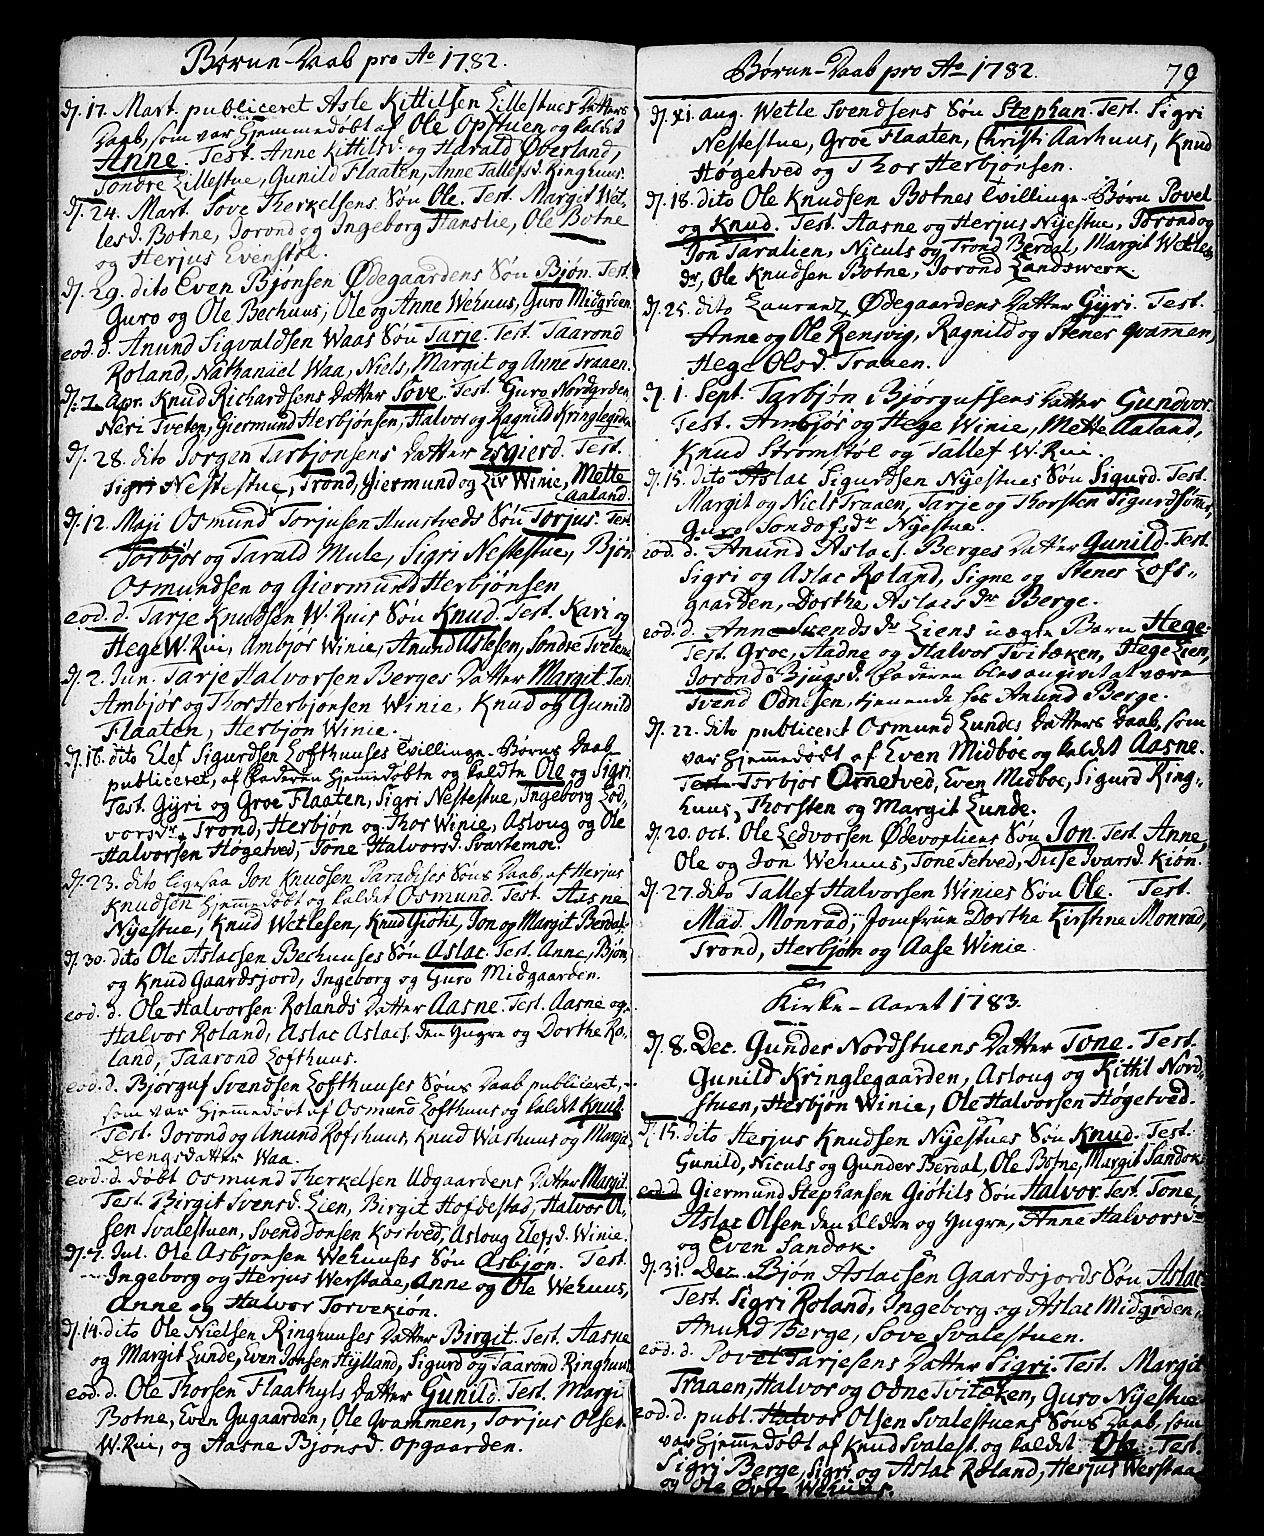 Børne-Daab pro Ao 1782.
d. 17. Mart. publiceret Asle Kittilsen Lillestues Datters
Daab, som var Hjemmedøbt af Ole Opstuen og kaldet
Anne. Test. Anne Kittilsd. og Harald Øverland,
Sondre Lillestue, Gunild Flaaten, Anne Tallefsd. Ringhuus.
d. 24. Mart. Sove Therkelsens Søn Ole. Test. Margit Wet-
lesd. Botne, Jorond og Ingeborg Hanslie, Ole Botne
og Herjus Evenstøl.
d. 29. dito Even Bjønsen Ødegaardens Søn Bjøn. Test.
Guro og Ole Bechuus, Ole og Anne Wehuus, Guro Midgrden
eod. d. Anund Sigvaldsen Waas Søn Tarje. Test. Taarond
Roland, Nathaniel Waa, Niels, Margit og Anne Traaen.
d. 7 Apr. Knud Richardsens Datter Sove. Test. Guro Nordgrden
Neri Tveten, Giermund Herbjønsen, Halvor og Ragnild Kringlegrden
d. 28. dito Jorgen Tarbjønsens Datter Esgierd. Test.
Sigri Nestestue, Trond, Giermund og Liv Winie, Mette
Aaland.
d. 12. Maji Osmund Torjusen Huustveds Søn Torjus. Test.
Torbjør og Tarald Mule, Sigri Nestestue, Bjøn
Osmundsen og Giermund Herbjønsen
eod. d. Tarje Knudsen W. Ruis Søn Knud. Test. Kari og
Hege W. Rui, Ambjør Winie, Anund Aslesen, Sondre Tveten
d. 2. Jun. Tarje Halvorsen Berges Datter Margit. Test
Ambjør og Thor Herbjønsen Winie, Knud og Gunild
Flaaten, Herbjøn Winie.
d. 16. dito Elef Sigurdsen Lofthuuses Tvillinge-Børns Daab
publiceret, af Faderen Hjemmedøbte og kaldte Ole og Sigri
Test. Gyri og Groe Flaaten, Sigri Nestestue, Ingeborg Led-
vorsdr, Trond, Herbjøn og Thor Winie, Asloug og Ole
Halvorsen Høgetved, Tone Halvorsd. Svartemoe.
d. 23. dito ligesaa Jon Knudsen Paradises Søns Daab, af Herjus
Knudsen Hjemmedøbt og kaldet Osmund. Test. Aasne
Nyestue, Knud Wetlesen, Knud Giøtil, Jon og Margit Berdal.
d. 30. dito Ole Aslacsen Bechuuses Søn Aslac. Test. Anne, Bjøn,
og Knud Gaardsjord, Ingeborg og Guro Midgaarden.
eod. d. Ole Halvorsen Rolands Datter Aasne. Test. Aasne og
Halvor Roland, Aslac Aslacs. den Yngre og Dorthe Ro-
land, Taarond Lofthuus.
eod. d. Bjørguf Svendsen Lofthuuses Søns Daab publiceret,
som var Hjemmedøbt af Osmund Lofthuus og kaldet Knud.
Test. Jorond og Anund Rofshuus, Knud Washuus og Margit
Drengsdatter Waa.
eod. d. døbt Osmund Therkelsen Udgaardens Datter Margit.
Test. Birgit Svensd. Lien, Birgit Hofdestad, Halvor Ol-
sen Svalestuen, Svend Jonsen Kostved, Asloug Elefsd. Winie.
d. 7. Jul. Ole Asbjønsen Wehuuses Søn Asbjøn. Test.
Ingeborg og Herjus Werstaae, Anne og Ole Wehuus,
Anne og Halvor Torvekiøn.
d. 14. dito Ole Nielsen Ringhuuses Datter Birgit. Test. Aasne
og Margit Lunde, Even Jonsen Hylland, Sigurd og Taarond Ringhuus
eod. d. Ole Thorsen Flaathyls Datter Gunild. Test. Margit
Botne, Even Gugaarden, Ole Qvammen, Torjus Olsen
W. Rui, og Aasne Bjønsd. Opgaarden.
Børne-Daab pro Ao 1782.
79
d. XI. aug. Wetle Svendsens Søn Stephan. Test. Sigri
Nestestue, Groe Flaaten, Christi Aarhuus, Knud
Høgetved og Thor Herbjønsen.
d. 18. dito Ole Knudsen Botnes Tvillinge-Børn Povel
og Knud. Test. Aasne og Herjus Nyestue, Torond og
Jon Taralien, Niculs og Trond Berdal, Margit Wetles
dr, Ole Knudsen Botne, Jorond Landswerk.
d. 25. dito Laurantz Ødegaardens Datter Gyri. Test.
Anne og Ole Rensvig, Ragnild og Stenes Qvaman,
Hege Olsd. Traaen.
d. 1. Sept. Tarbjøn Bjørgufsens Datter Gundvor.
Test. Ambjør og Hege Winie, Mette Aaland,
Knud Strømstøl og Tallef W. Rui.
d. 15. dito Aslac Sigurdsen Nyestues Søn Sigurd. Test.
Margit og Niels Traaen, Tarje og Thorsten Sigurdsøner,
Guro Jondofsdr Nyestue.
eod. d. Anund Aslacs. Berges Datter Gunild. Test.
Sigri og Aslac Roland, Signe og Stenes Lofs-
gaarden, Dorthe Aslacsdr Berge.
eod. d. Anne Svendsdr Liens uægte Barn Hege.
Test. Groe, Aadne og Halvor Tvitæken, Hege Lien,
Jorond Bjugsd. (Faderen blev angivet at være
Svend Odnesen, tjenende hos Anund Berge.
d. 22. dito publiceret Osmund Lundes Datters Daab, som
var Hjemmedøbt af Even Midboe og kaldet Aasne.
Test. Torbjør Ornetved, Even Medboe, Sigurd Ring-
huus, Thorsten og Margit Lunde.
d. 20. Oct. Ole Ledvorsen Ødevosliens Søn Jon. Test. Anne,
Ole og Jon Wehuus, Tone Setved, Duse Ivarsd. Kiøn.
d. 27. dito Tallef Halvorsen Winies Søn Ole. Test.
Mad. Monrad, Jomfrue Dorthe Kirstine Monrad,
Trond, Herbjøn og Aase Winie.
Kirke-Aaret 1783.
d. 8. Dec. Gunder Nordstuens Datter Tone. Test.
Gunild Kringlegaarden, Asloug og Kittil Nord-
stuen, Herbjøn Winie, Ole Halvorsen Høgetved.
d. 15. dito Herjus Knudsen Nyestues Søn Knud. Test.
Gunild, Niculs og Gunder Berdal, Ole Botne, Margit Sandok.
eod. d. Giermund Stephansen Giøtils Søn Halvor. Test. Tone,
Aslac Olsen den Ældre og Yngre, Anne Halvorsdr
og Even Sandok.
d. 31. Dec. Bjøn Aslacsen Gaardsjords Søn Aslac.
Test. Sigri Roland, Ingeborg og Aslac Midgrden,
Anund Berge, Sove Svalestuen.
eod. d. Povel Tarjesens Datter Sigri. Test. Margit
Traaen, Halvor og Odne Tvitæken, Guro Nyestue
eod. d. publ. Halvor Olsen Svalestuens Søns Daab, som
var Hjemmedøbt af Knud Svalest. og kaldet Ole. Test.
Sigri Berge, Sigri og Aslac Roland, Herjus Werstaae
og Ole Wehuus.